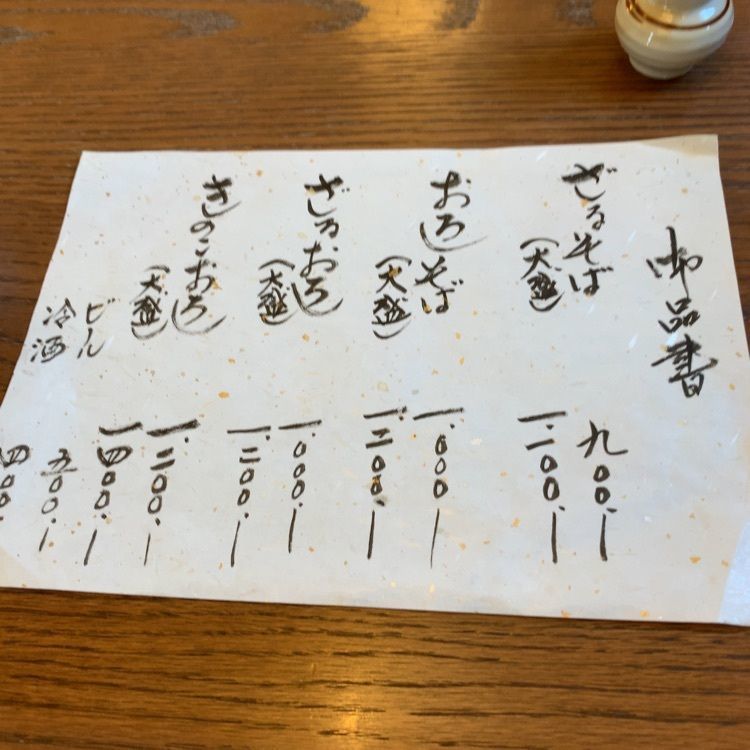 御品書
ざるそば 九〇〇.ー
(大盛) 一.一〇〇.ー
おろしそば 一.〇〇〇ー
(大盛) 一.二〇〇.ー
ざるおろし 一.〇〇〇.ー
(大盛) 一.二〇〇.ー
きのこおろし 一.二〇〇.ー
(大盛) 一四〇〇.ー
ビール 五〇〇.ー
冷酒 四〇〇.